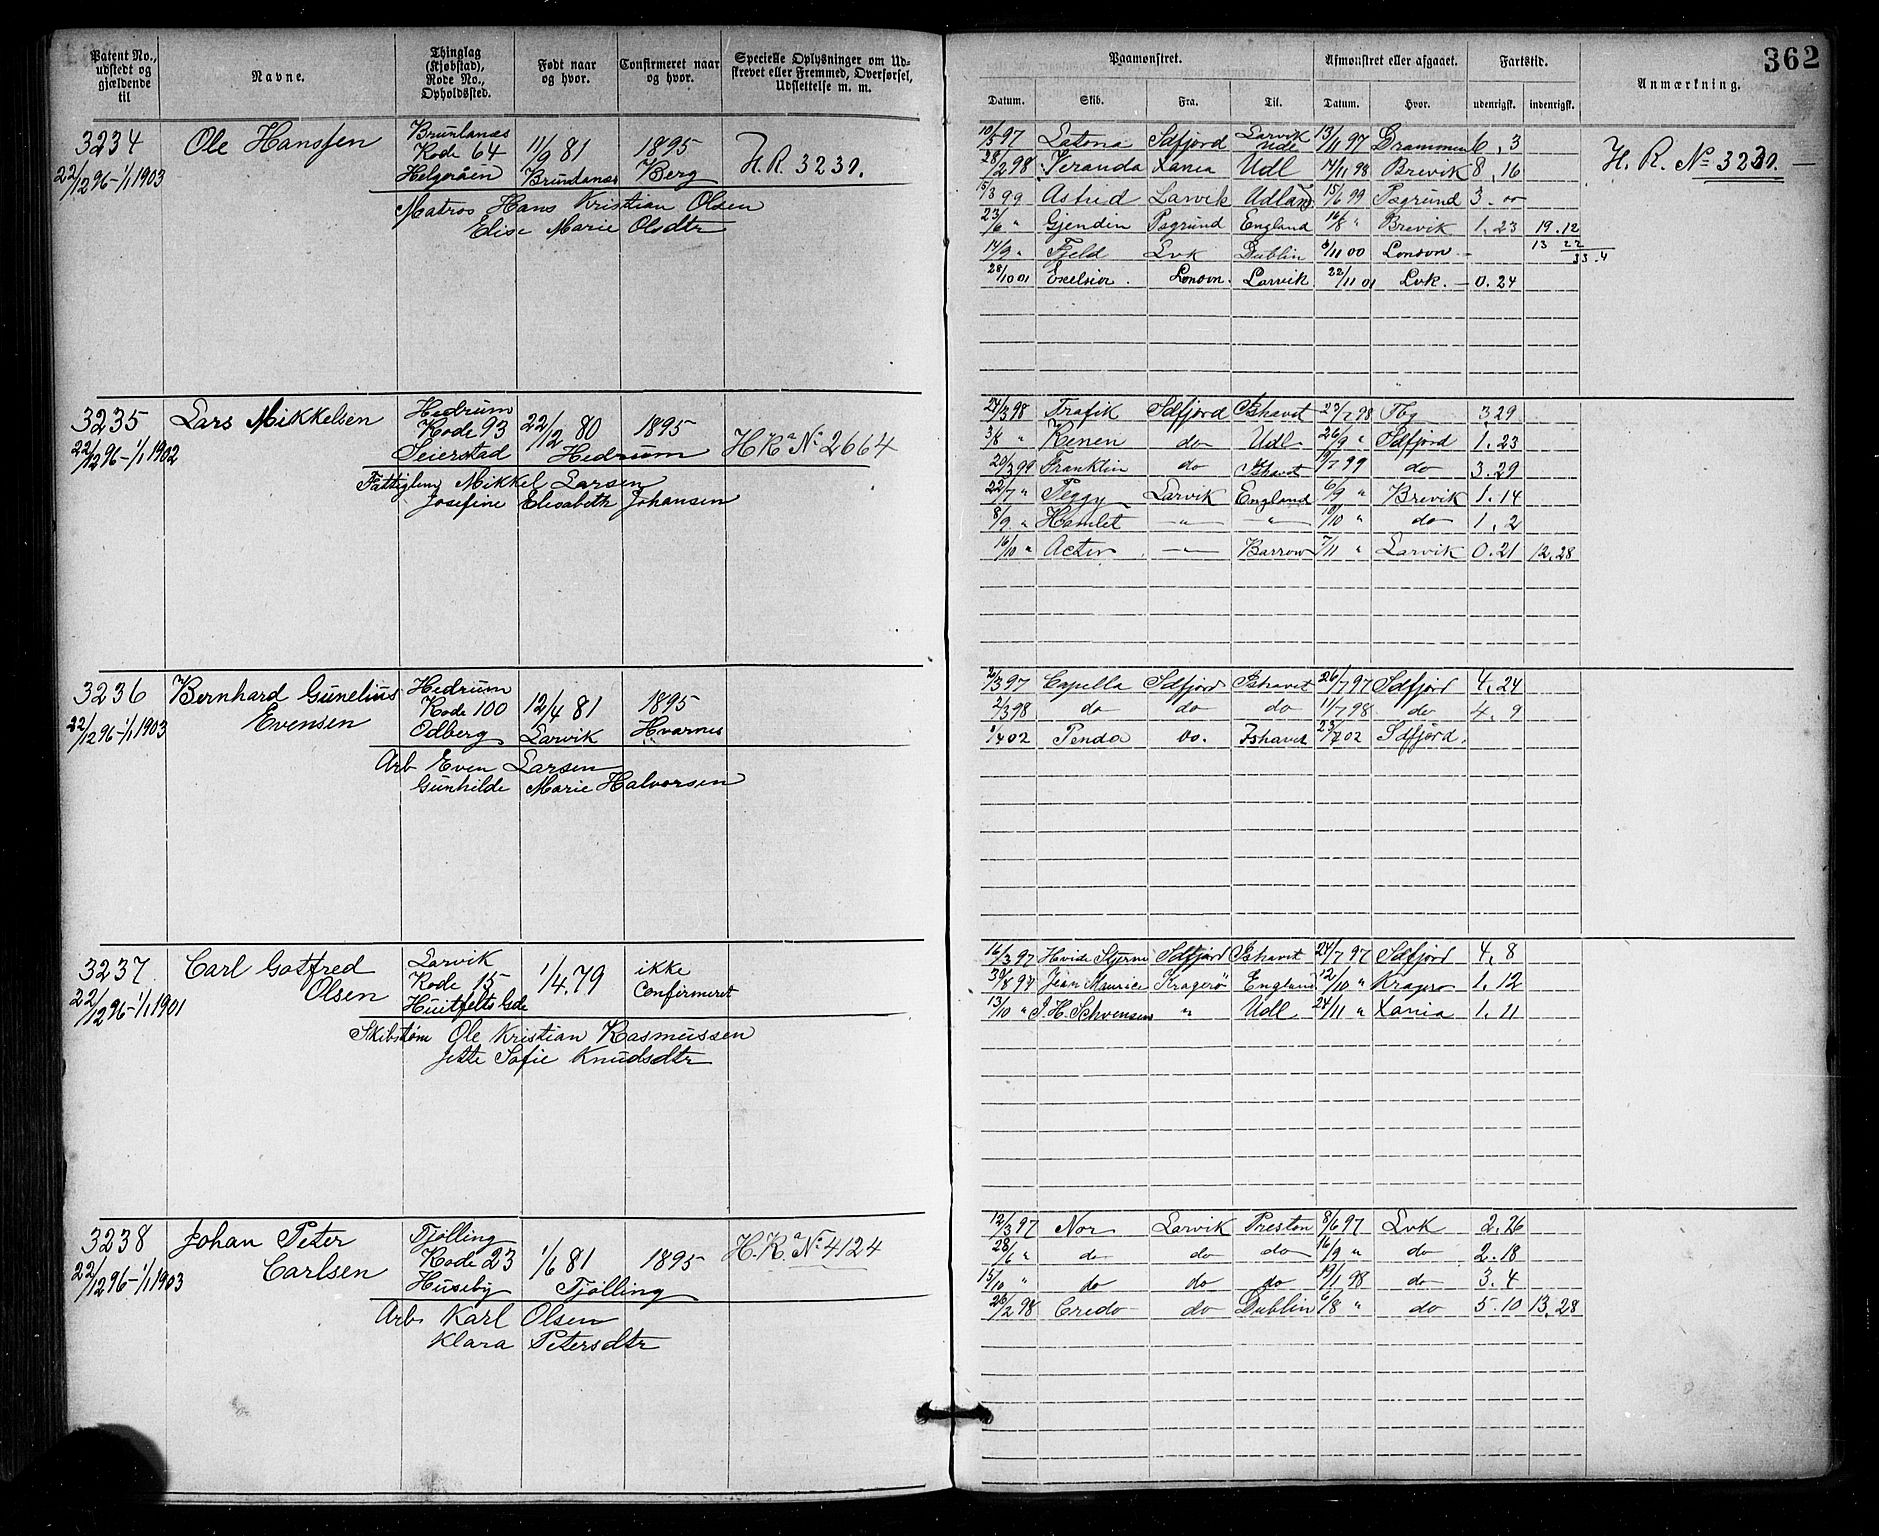 362
Patent No., udstedt og gjældende til
Navne.
Thinglag (Kjøbstad), Rode No., Opholdssted.
Født naar og hvor.
Confirmeret naar og hvor.
Specielle Oplysninger om Udskrevet eller Fremmed, Overførsel, Udslettelse m. m.
Paamønstret.
Afmønstret eller afgaaet.
Fartstid.
Anmærkning.
Datum. Skib. Fra. Til. Datum. Hvor. udenrigsk. indenrigsk.
3234 Ole Hanssen Brunlanæs 11/9 81 1895 H. R. 3230.
22/12 96 - 1/1 1903 Rode 64 Brunlanæs Berg
Helgeråen
Matros Hans Kristian Olsen
Elise Marie Olsdtr
10/5 97 Latona Sdfjord Larvik Ude 13/11 97 Drammen 6, 3 H. R. No 3230.
28/2 98 Veranda Xania Udl 14/11 98 Brevik 8, 16
15/3 99 Astrid Larvik Udland 15/6 99 Psgrund 3 -
23/6 " Gjendin Psgrund England 16/8 " Brevik 1. 23 19. 12
14/9 " Fjeld Lvk Dublin 8/11 00 London - 13 22
33. 4
28/10 01 Exelsior. London. Larvik 22/11 01 Lvk. - 0. 24
3235 Lars Mikkelsen Hedrum 22/12 80 1895 H. Ra No 2664
22/12 96 - 1/1 1902 Rode 93 Hedrum
Seierstad
Fattiglem Mikkel Larsen
Josefine Elisabeth Johansen
24/3 98 Trafik Sdfjord Ishavet 23/7 98 Tbg 3, 29
3/8 " Kenen do Udl 26/9 " Sdfjord 1. 23
20/3 99 Franklin do Ishavet 19/7 99 do 3. 29
22/7 " Peggy Larvik England 6/9 " Brevik 1. 14
8/9 " Hamlet — " — — " — 10/10 " do 1, 2
16/10 " Acter — " — Barrow 7/11 " Larvik 0. 21 12. 28
3236 Bernhard Gunelius Hedrum 12/4 81 1895
22/12 96 - 1/1 1903 Evensen Rode 100 Larvik Hvarnes
Odberg
Arb Even Larsen
Gunhilde Marie Halvorsen
2/3 97 Capella Sdfjord Ishavet 26/7 97 Sdfjord 4. 24
2/3 98 do do do 11/7 98 do 4. 9
1/4 02 Penda do. Ishavet 23/7 02 Sdfjord.
3237 Carl Gotfred Larvik 1/4. 79 ikke
22/12 96 - 1/1 1901 Olsen Rode 15 Confirmeret
Huitfelts Gde
Skibstøm Ole Kristian Rasmussen
Jette Sofie Knudsdtr
16/3 97 Hvide Stjerne Sdfjord Ishavet 24/7 97 Sdfjord 4, 8
30/8 97 Jean Maurice Kragerø England 12/10 " Kragerø 1, 12
13/10 " J. H. Schwensen " Udl 24/11 " Xania 1. 11
3238 Johan Peter Tjølling 1/6 81 1895 H. Ra No 4124
22/12 96 - 1/1 1903 Carlsen Rode 23 Tjølling
Huseby
Arb Karl Olsen
Klara Petersdtr
12/3 97 Nor Larvik Preston 8/6 97 Lvk 2. 26
28/6 " do do do 16/9 " do 2. 18
15/10 " do do do 19/1 98 do 3. 4
26/2 98 Credo do Dublin 6/8 " do 5. 10 13. 28